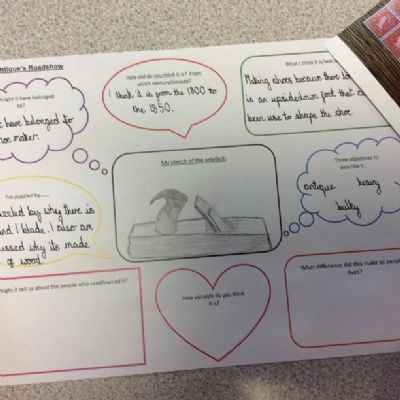 Antique's Roadshow
might it have belonged
to?
have belonged to
shoe maker.
How old do you think it is? From
which century/decade?
I think it is from the 1800 to
the 1850.
What I think it is/was
Making shoes because there
is an upsidedown foot that
been use to shape the shoe.
My sketch of the artefact:
Three adjectives to
describe it.
antique heavy
bulky
I'm puzzled by.....
by why there is
I blade. I also am
why its made
of wood.
might it tell us about the people who used/owned it?
How valuable do you think
it is?
What difference did this make to people
lives?